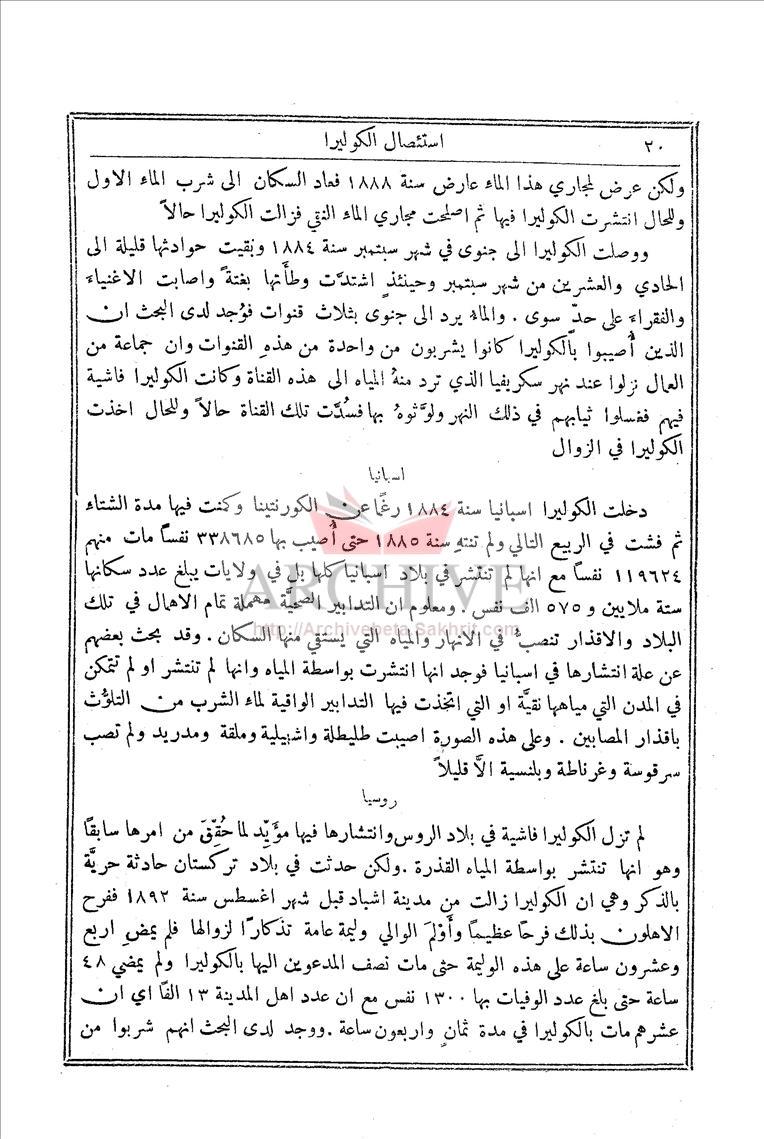 ٢٠ استئصال الكوليرا
ولكن عرض لمجاري هذا الماء عارض سنة ١٨٨٨ فعاد السكان الى شرب الماء الاول
وللحال انتشرت الكوليرا فيها ثم اصلحت مجاري الماء النقي فزالت الكوليرا حالاً
ووصلت الكوليرا الى جنوى في شهر سبتمبر سنة ١٨٨٤ وبقيت حوادثها قليلة الى
الحادي والعشرين من شهر سبتمبر وحينئذٍ اشتدَّت وطأَتها بغتةً واصابت الاغنياءَ
والفقراءَ على حدّ سوى . والماء يرد الى جنوى بثلاث قنوات فوُجد لدى البحث ان
الذين أُصيبوا بالكوليرا كانوا يشربون من واحدة من هذهِ القنوات وان جماعة من
العمال نزلوا عند نهر سكريفيا الذي ترد منهُ المياه الى هذه القناة وكانت الكوليرا فاشية
فيهم فغسلوا ثيابهم في ذلك النهر ولوَّثوهُ بها فسُدَّت تلك القناة حالاً وللحال اخذت
الكوليرا في الزوال
اسبانيا
دخلت الكوليرا اسبانيا سنة ١٨٨٤ رغمًا عن الكورنتينا وكمنت فيها مدة الشتاء
ثم فشت في الربيع التالي ولم تنتهِ سنة ١٨٨٥ حتى أُصيب بها ٣٣٨٦٨٥ نفسًا مات منهم
١١٩٦٢٤ نفسًا مع انها لم تنتشر في بلاد اسبانيا كلها بل في ولايات يبلغ عدد سكانها
ستة ملايين و ٥٧٥ الف نفس . ومعلوم ان التدابير الصحيَّة مهملة تمام الاهمال في تلك
البلاد والاقذار تنصبُّ في الانهار والمياه التي يستقي منها السكان . وقد بحث بعضهم
عن علة انتشارها في اسبانيا فوجد انها انتشرت بواسطة المياه وانها لم تنتشر او لم تتمكن
في المدن التي مياهها نقيَّة او التي اتخذت فيها التدابير الواقية لماء الشرب من التلوُّث
باقذار المصابين . وعلى هذه الصورة اصيبت طليطلة واشبيلية وملقة ومدريد ولم تصب
سرقوسة وغرناطة وبلنسية الاَّ قليلاً
روسيا
لم تزل الكوليرا فاشية في بلاد الروس وانتشارها فيها مؤَيِّد لما حُقِّقَ من امرها سابقًا
وهو انها تنتشر بواسطة المياه القذرة . ولكن حدثت في بلاد تركستان حادثة حريَّة
بالذكر وهي ان الكوليرا زالت من مدينة اشباد قبل شهر اغسطس سنة ١٨٩٢ ففرح
الاهلون بذلك فرحًا عظيمًا وأَوْلَمَ الوالي وليمة عامة تذكارًا لزوالها فلم يمضِ اربع
وعشرون ساعة على هذه الوليمة حتى مات نصف المدعوين اليها بالكوليرا ولم يمضي ٤٨
ساعة حتى بلغ عدد الوفيات بها ١٣٠٠ نفس مع ان عدد اهل المدينة ١٣ الفًا اي ان
عشرهم مات بالكوليرا في مدة ثمانٍ واربعون ساعة . ووجد لدى البحث انهم شربوا من
ARCHIVE
http://Archivebeta.Sakhrit.com